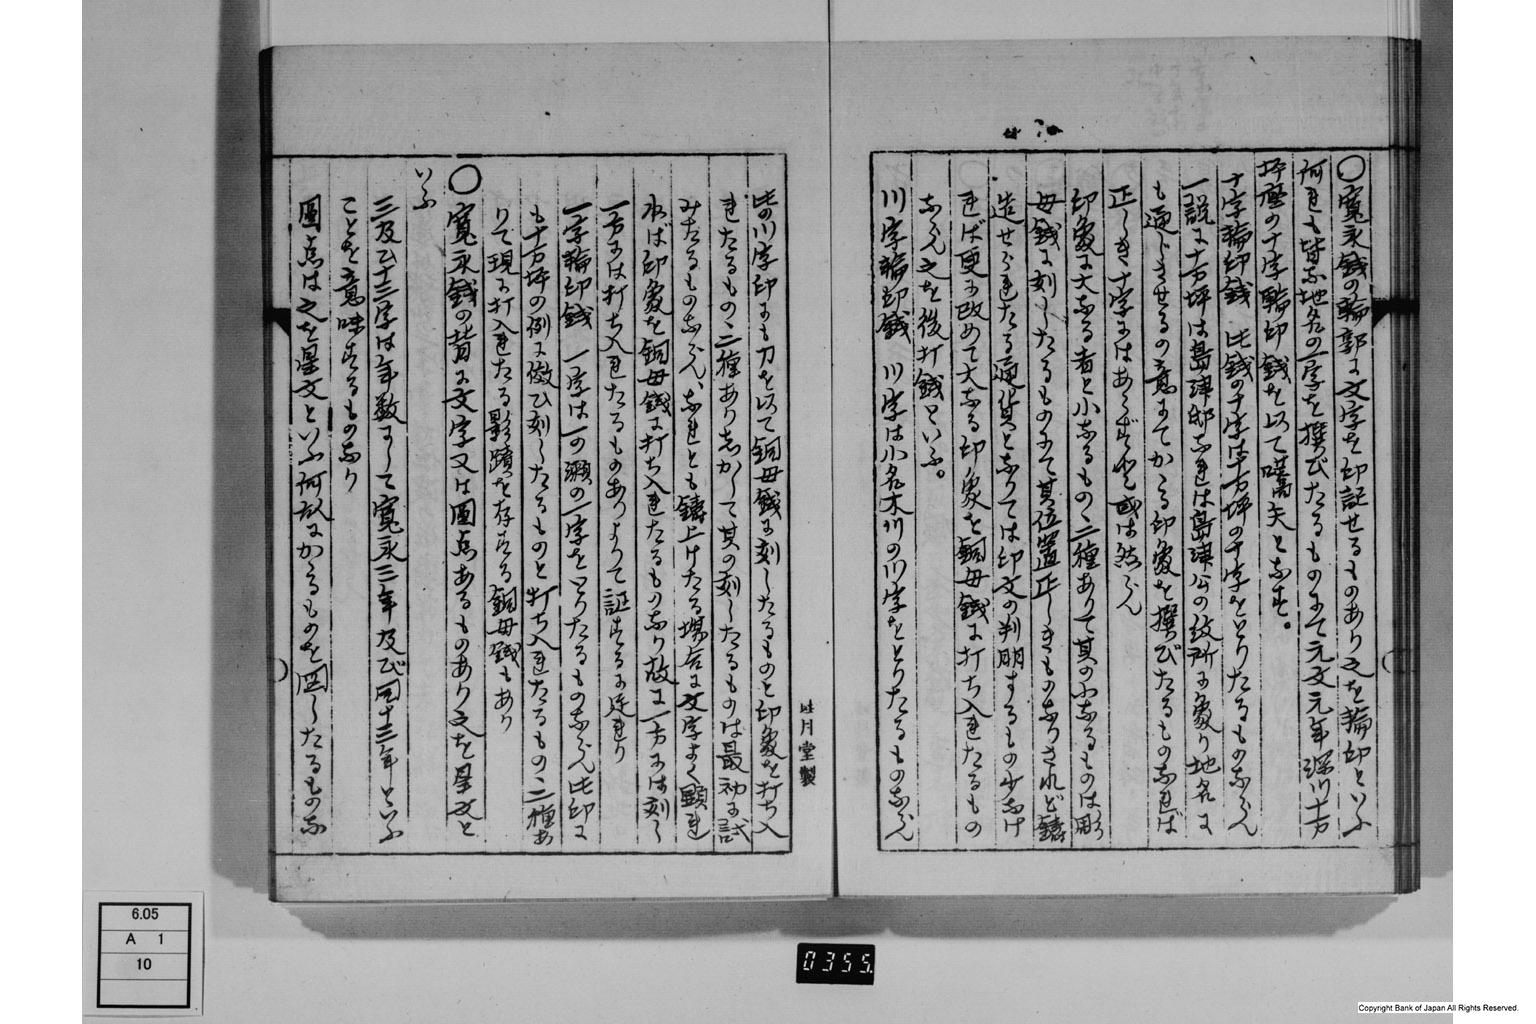 〇寛永銭の輪郭に文字を印記せるものあり之を輪印といふ
何れも皆な地名の一字を撰びたるものにて元文元年深川十万
坪座の十字輪印銭を以て嚆矢となす。
十字輪印銭 此銭の十字は十万坪の十字をとりたるものならん
一説に十万坪は島津邸なれは島津公の紋所に象り地名に
も通じさせるの意にてかゝる印象を撰びたるものなれば
正しき十字にはあらずと 或は然らん
印象に大なる者と小なるもの二種ありて其の小なるものは彫
母銭に刻したるものにて其位置正しきものなりされど鋳
造せられたる通貨となりては印文の判明するもの少なけ
れば更に改めて大なる印象を銅母銭に打ち入れたるもの
ならん之を後打銭といふ。
川字輪印銭 川字は小名木川の川字をとりたるものならん
此の川字印にも刀を以て銅母銭に刻したるものと印象を打ち入
れたるもの二種あり而かして其の刻したるものは最初に試
みたるものならん、なれとも鋳上けたる場合に文字よく顕れ
ねは印象を銅母銭に打ち入れたるものなり故に一方には刻し
一方には打ち入れたるものありよつて証するに足れり
一字輪印銭 一字は一の瀬の一字をとりたるものならん此印に
も十万坪の例に倣ひ刻したるものと打ち入れたるもの二種あ
りて現に打入れたる影蹟を存する銅母銭もあり
〇寛永銭の背に文字又は圓点あるものあり之を星文と
いふ
三及ひ十三字は年数にして寛永三年及び同十三年といふ
ことを意味するものなり
圓点は之を星文といふ何故にかゝるものを図したるものな
月堂製
6.05
A 1
10
0355.
Copyright Bank of Japan All Rights Reserved.